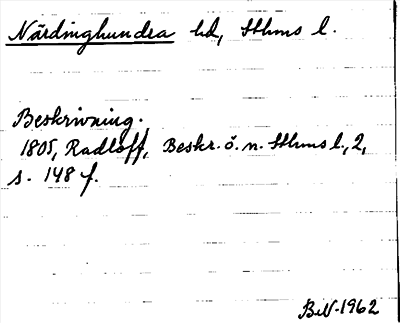 Närdinghundra hd, Sthms l.
Beskrivning.
1805, Radloff, Beskr. ö. n. Sthms l., 2,
s. 148 f.
B.N. 1962